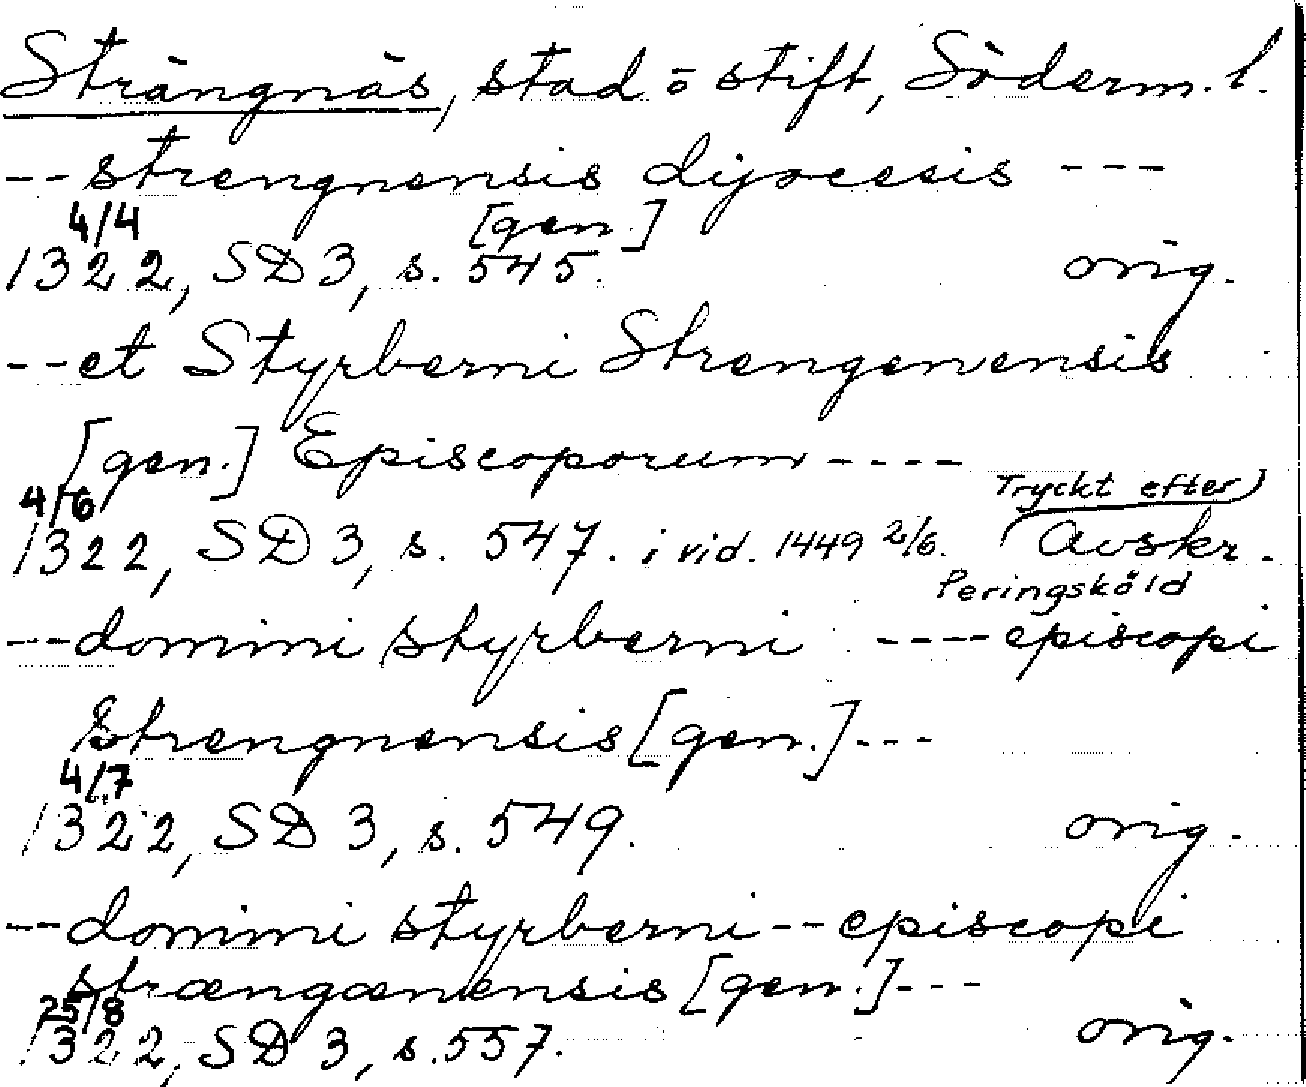 Strängnäs, stad o stift, Söderm. l.
--strengnensis dyocesis ---
4/4 [gen.]
1322, SD 3, s. 545. orig.
--et Styrberni Strengenensis
[gen.] Episcoporum----
4/6 Tryckt efter
1322, SD 3, s. 547. i vid. 1449 2/6. Avskr.
Peringsköld
--domini styrberni ----episcopi
strengnensis [gen.]---
4/7
1322, SD 3, s. 549. orig.
--domini styrberni--episcopi
strængænensis [gen.]---
25/8
1322, SD 3, s. 557. orig.